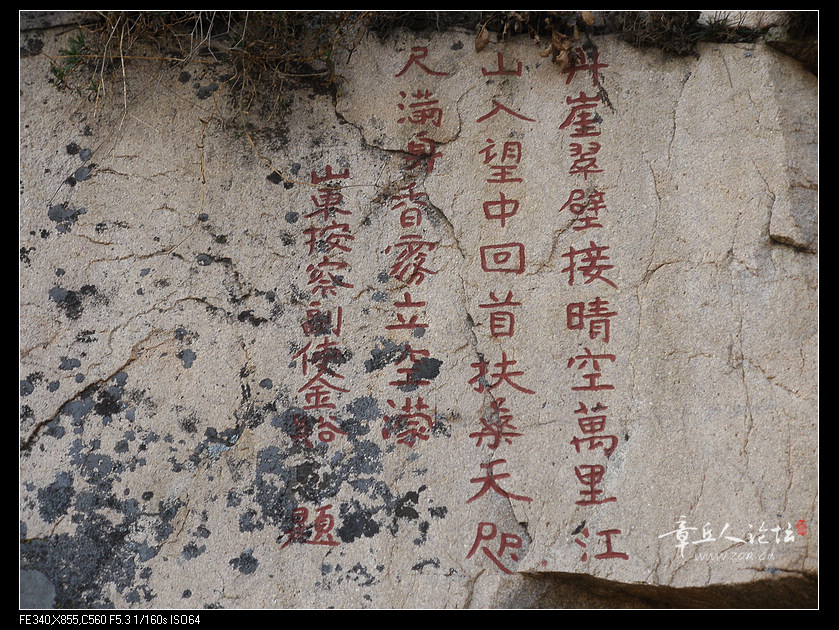 丹崖翠壁接晴空萬里江
山入望中回首扶桑天咫
尺滿身香霧立空濛
山東按察副使金 題
章丘人论坛
FE340,X855,C560 F5.3 1/160s ISO64